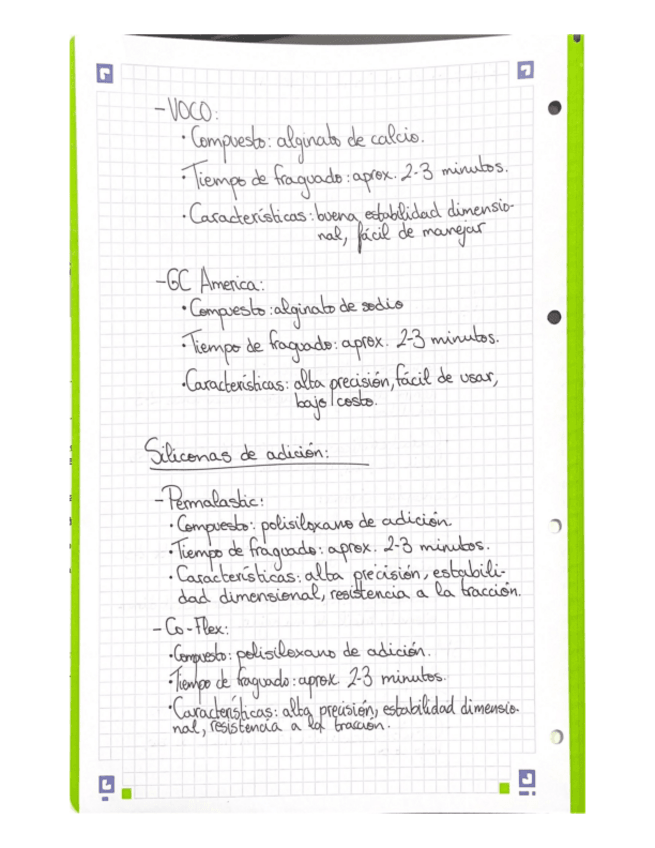 -VOCO:
• Compuesto: alginato de calcio.
• Tiempo de fraguado: aprox. 2-3 minutos.
• Características: buena estabilidad dimensio-
nal, fácil de manejar
-GC America:
• Compuesto: alginato de sodio
• Tiempo de fraguado: aprox. 2-3 minutos.
• Características: alta precisión, fácil de usar,
bajo costo.
Siliconas de adición:
-Permalastic:
• Compuesto: polisiloxano de adición.
• Tiempo de fraguado: aprox. 2-3 minutos.
• Características: alta precisión, estabili-
dad dimensional, resistencia a la tracción.
-Co-Flex:
• Compuesto: polisiloxano de adición.
• Tiempo de fraguado: aprox. 2-3 minutos.
• Características: alta precisión, estabilidad dimensio-
nal, resistencia a la tracción.